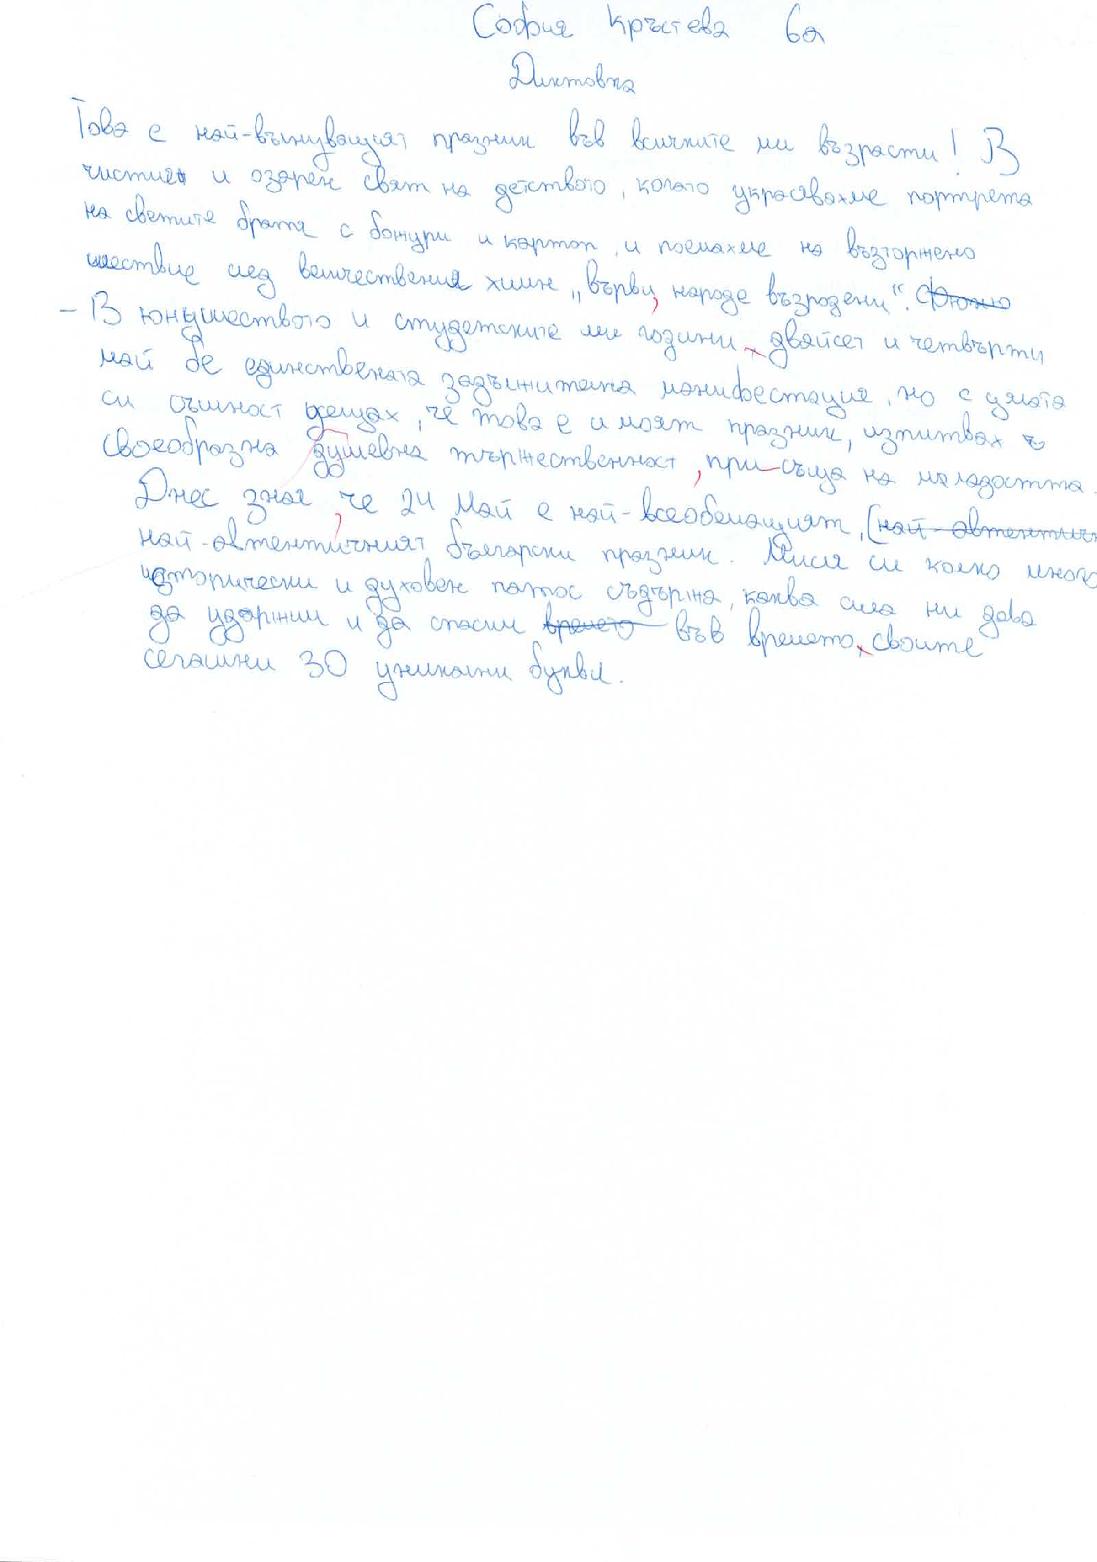 София Кръстева 6а
Диктовка
Това е най-вълнуващият празник във всичките ми възрасти! В
чистия и озарен свят на детството, когато украсявахме портрета
на светите братя с божури и картон, и поемахме на възторжено
шествие след величествения химн „Върви, народе възродени".
- В юношеството и студетските ми години двайсет и четвърти
май бе единствената задължителна манифестация, но с цялата
си същност усещах, че това е и моят празник, изпитвах
своеобразна душевна тържественност, присъща на младостта.
Днес зная, че 24 Май е най-всеобемащият, (най-автентичн
най-автентичният български празник. Мисля си колко много
исторически и духовен патос съдържа, каква сила ни дава
да удържим и да спасим времето във времето своите
сегашни 30 уникални букви.